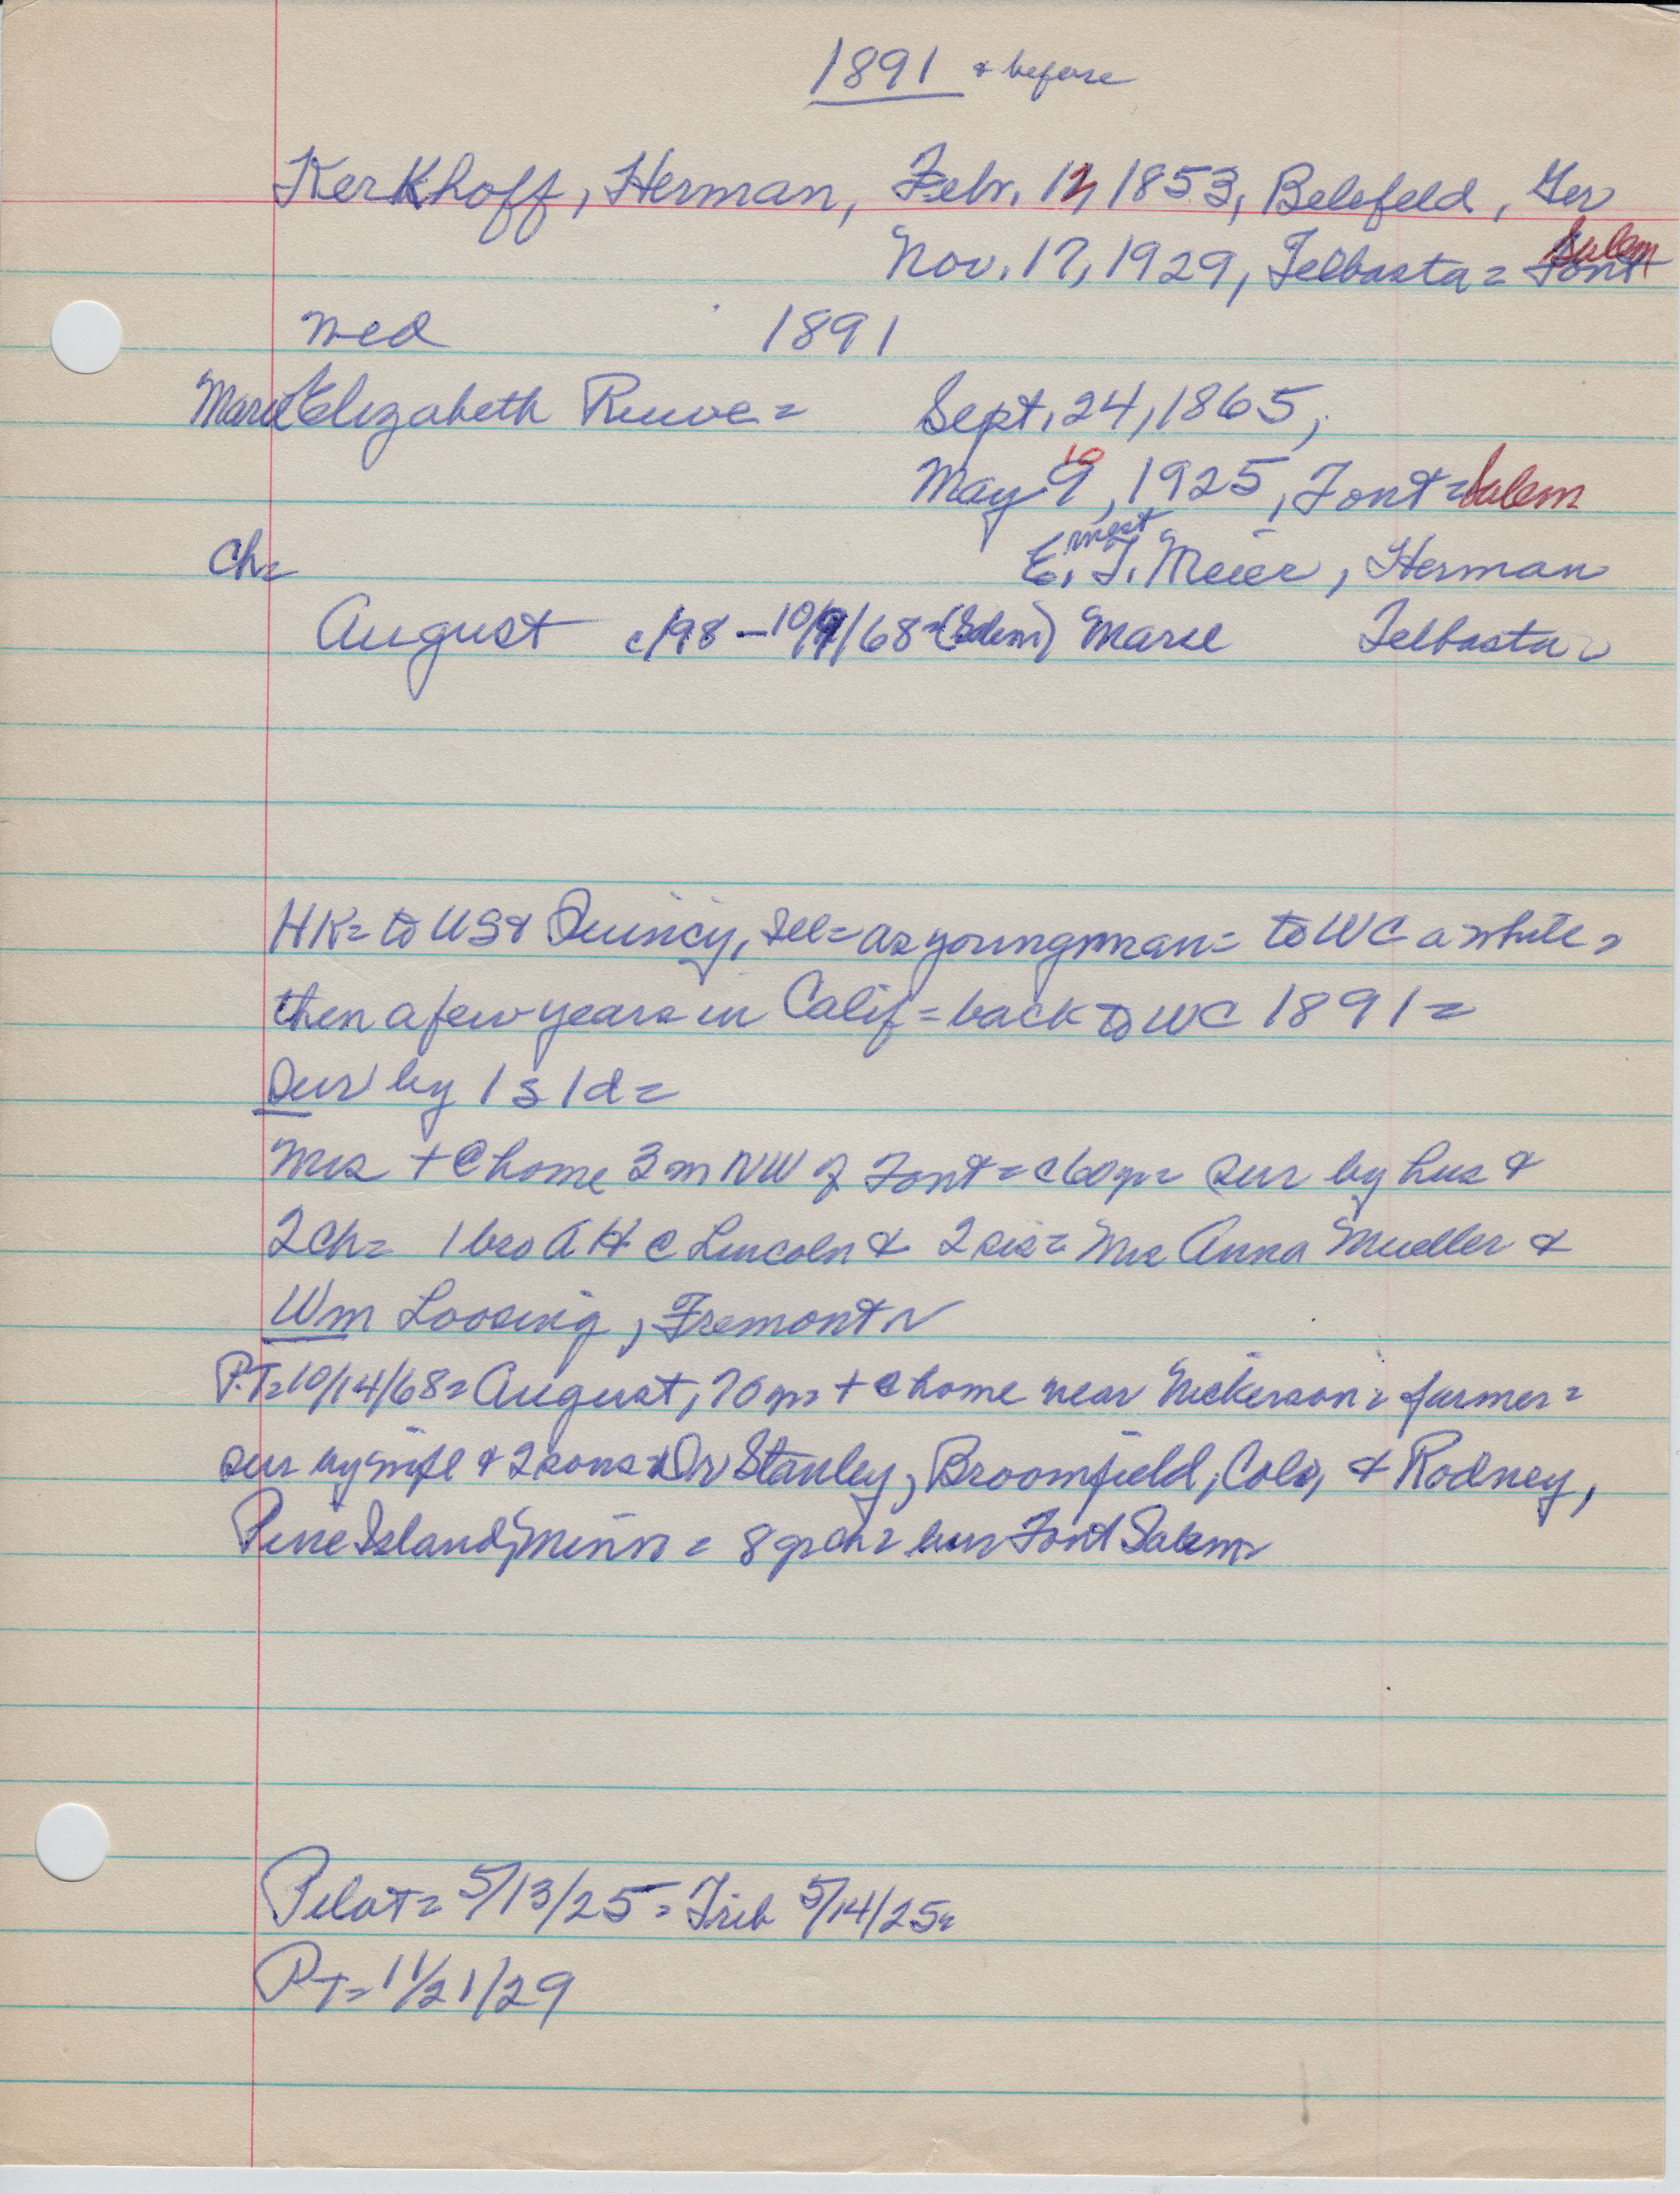 1891 & before
KerKhoff, Herman, Febr. 12, 1853, Belefeld, Ger
Nov. 17, 1929, Telbasta = Font Salem
med 1891
Marie Elizabeth Ruwe = Sept. 24, 1865,
May 9 10, 1925, Font = Salem
Ch = E.rnest T. Meier, Herman
August c/98 - 10/9/68 = (Salem) Marie Telbasta =
HK = to US & Quincy, Ill = as young man = to WC a while =
then a few years in Calif = back to WC 1891 =
Sur by 1 s 1 d =
Mrs + @ home 3 m NW of Font = c 60 yr = sur by hus &
2 ch = 1 bro A H @ Lincoln & 2 sis = Mrs Anna Mueller &
Wm Loosing, Fremont
PT = 10/14/68 = August, 70 yr = + @ home near Nickerson = farmer =
sur by wife & 2 sons = Dr Stanley, Broomfield, Colo, & Rodney,
Pine Island, Minn = 8 gr ch = bur Font Salem
Pilot = 5/13/25 = Trib 5/14/25 =
PT = 11/21/29